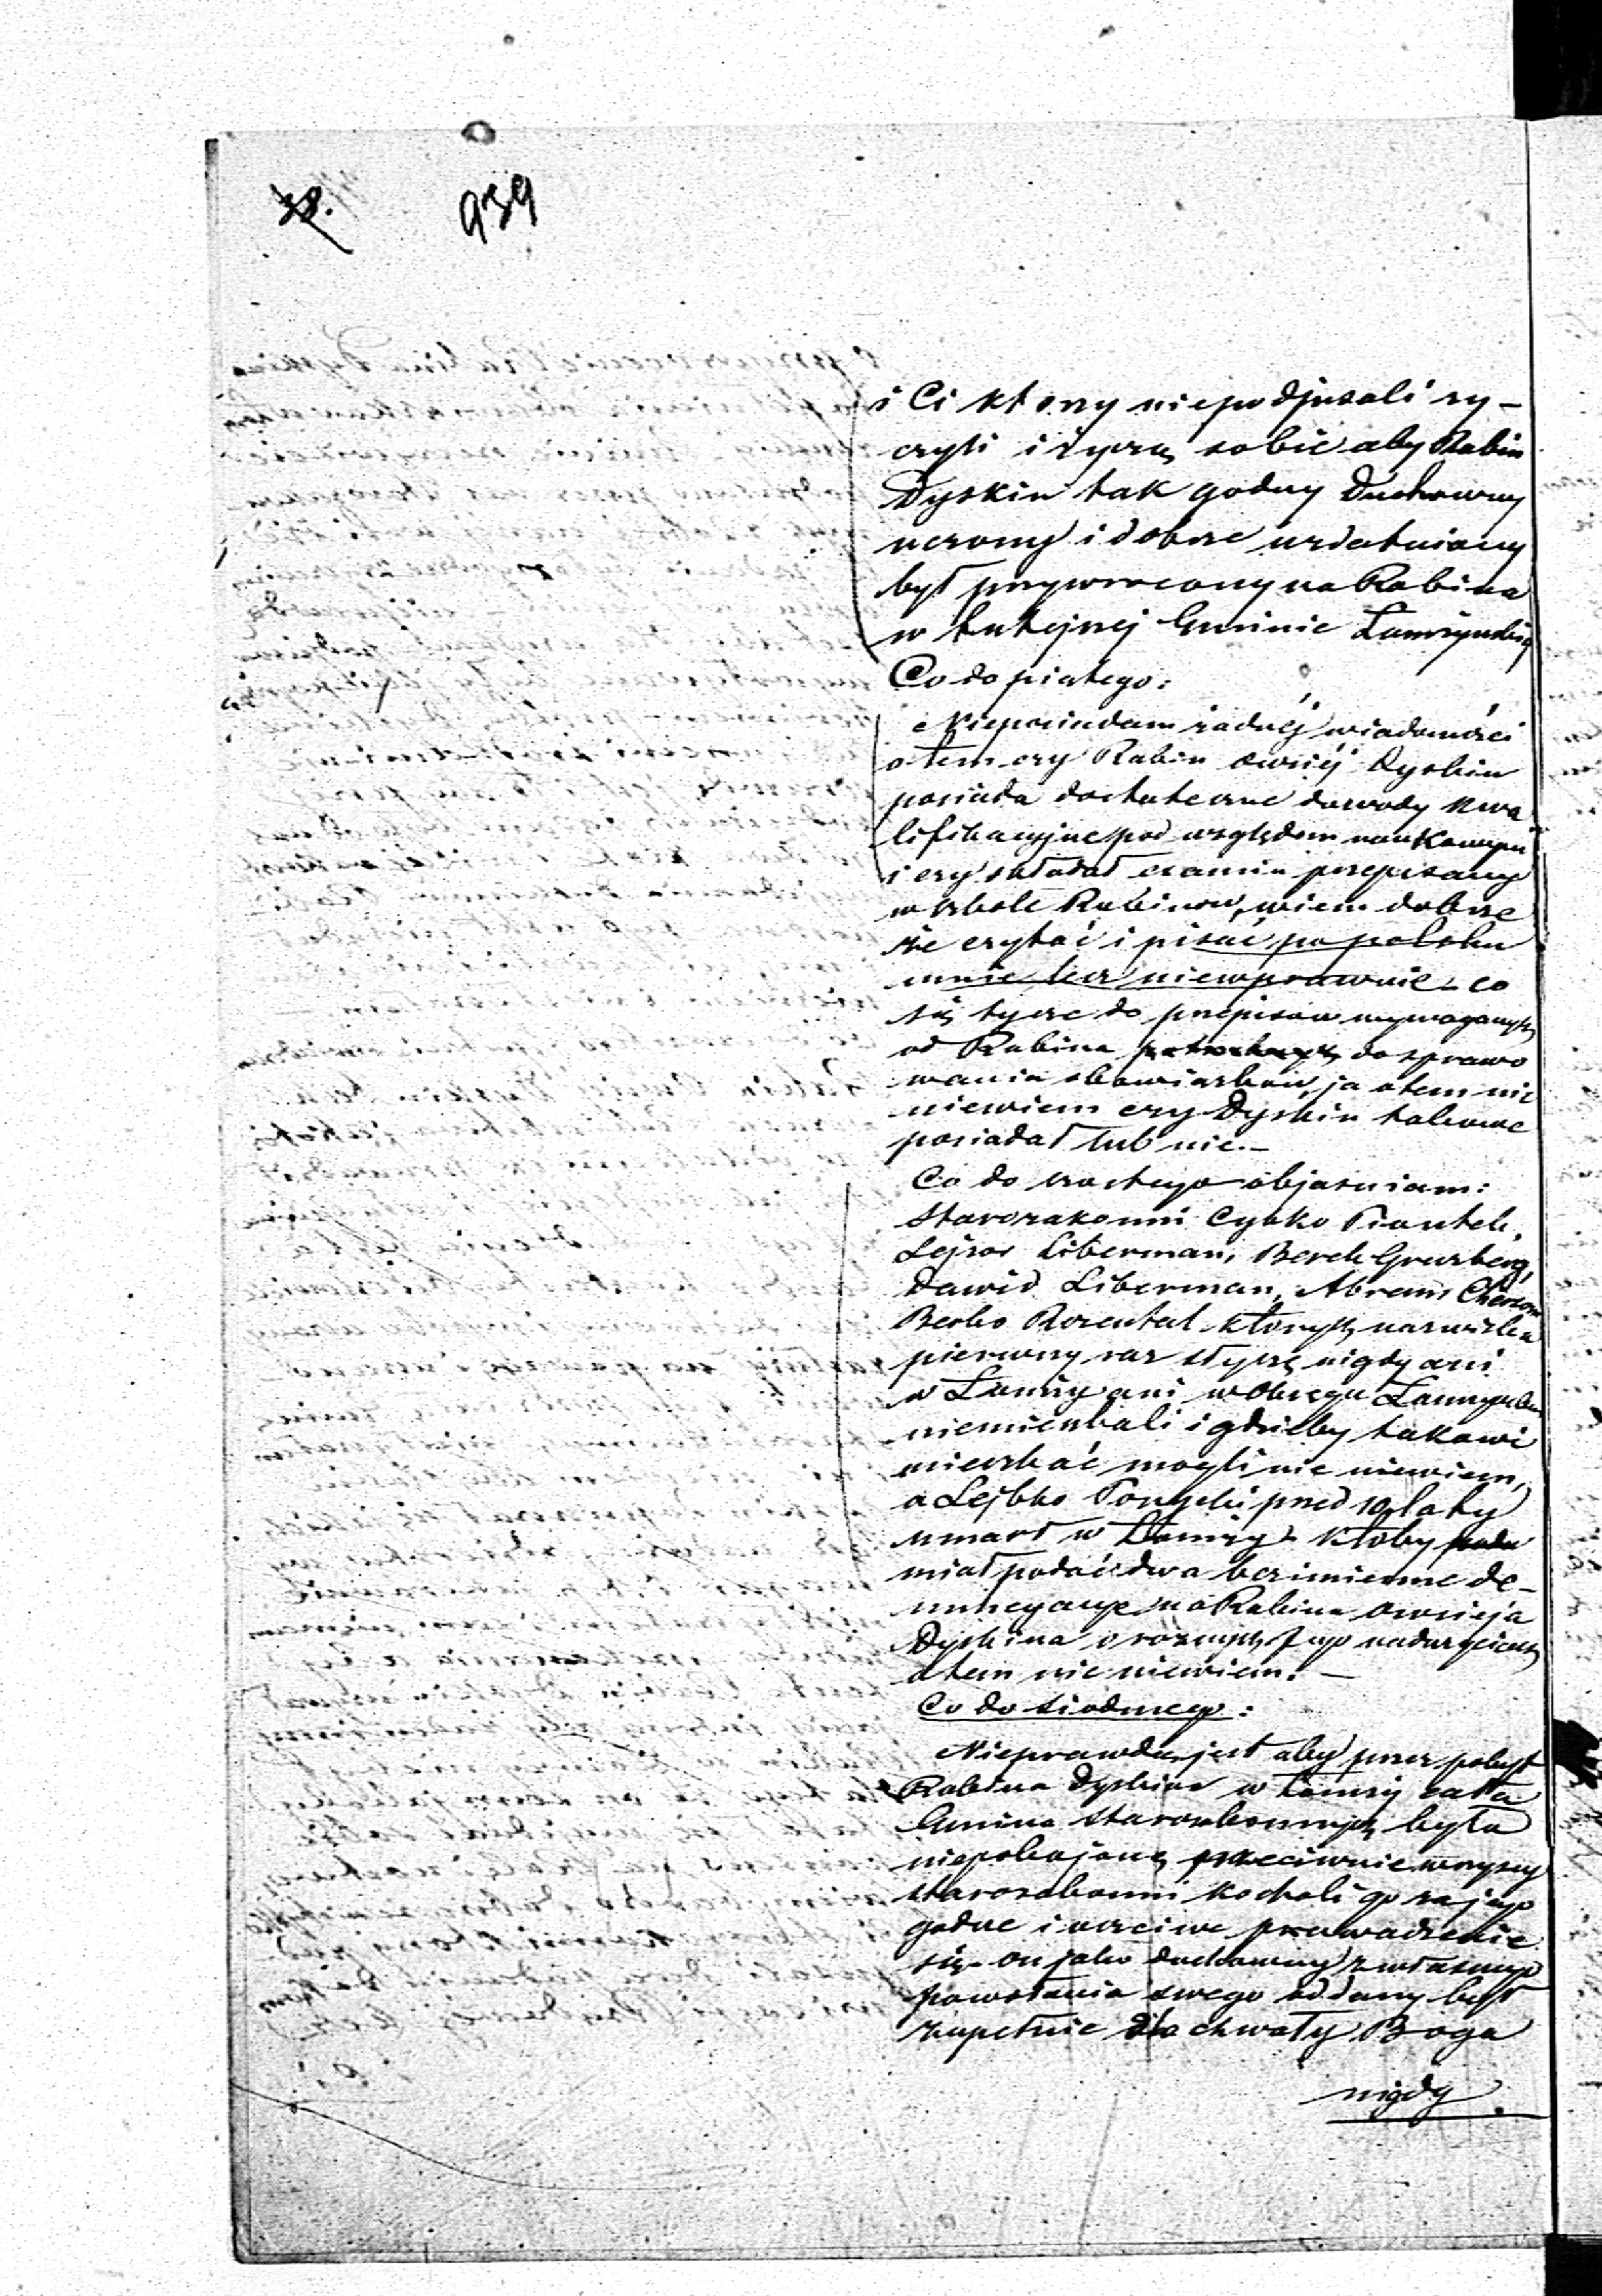 939
i Ci ktorzy niepodpisali zy-
czyli i życzą sobie aby Rabin
Dyskin tak godny Duchowny
uczony i dobrze uzdatniony
był przywrocony na Rabina
w tutejszej Gminie Łomżyńskiej
Co do piątego:
Nieposiadam żadnéj wiadomości
o tem czy Rabin Owsiéj Dyskin
posiada dostateczne dowody kwa
lifikacyjne pod względem naukowym
i czy składał examin przepisany
w szkole Rabinow, wiem dobrze
że czytać i pisać po polsku
umie lecz niewprawnie – co
się tycze do przepisow wymaganych
od Rabina do sprawo
wania obowiązkow, ja o tem nic
niewiem czy Dyskin takowe
posiadał lub nie.–
Co do szostego objasniam:
Starozakonni Cybko Piontek,
Lejzor Liberman, Berek Gruzberg,
Dawid Liberman, Abram Cherson
Berko Rozental ktorych nazwiska
pierwszy raz słyszę nigdy ani
w Łomży ani w Okręgu Łomżyńskim
niemieszkali i gdzieby takowi
mieszkać mogli nic niewiem,
a Lejbko przed 10 laty
umarł w Łomży – ktoby
miał podać dwa bezimienne de-
nuncyacye na Rabina Owsieja
Dyskina o roznych Jego nadużyciach
o tem nic niewiem. –
Co do siodmego:
Nieprawdą jest aby przez pobyt
Rabina Dyskina w Łomży cała
Gmina Starozakonnych była
niepokojoną przeciwnie wszyscy
starozakonni kochali go za jego
godne i uczciwe prowadzenie
się – on jako duchowny z własnego
powołania swego oddany był
zupełnie dla chwały Boga
nigdy